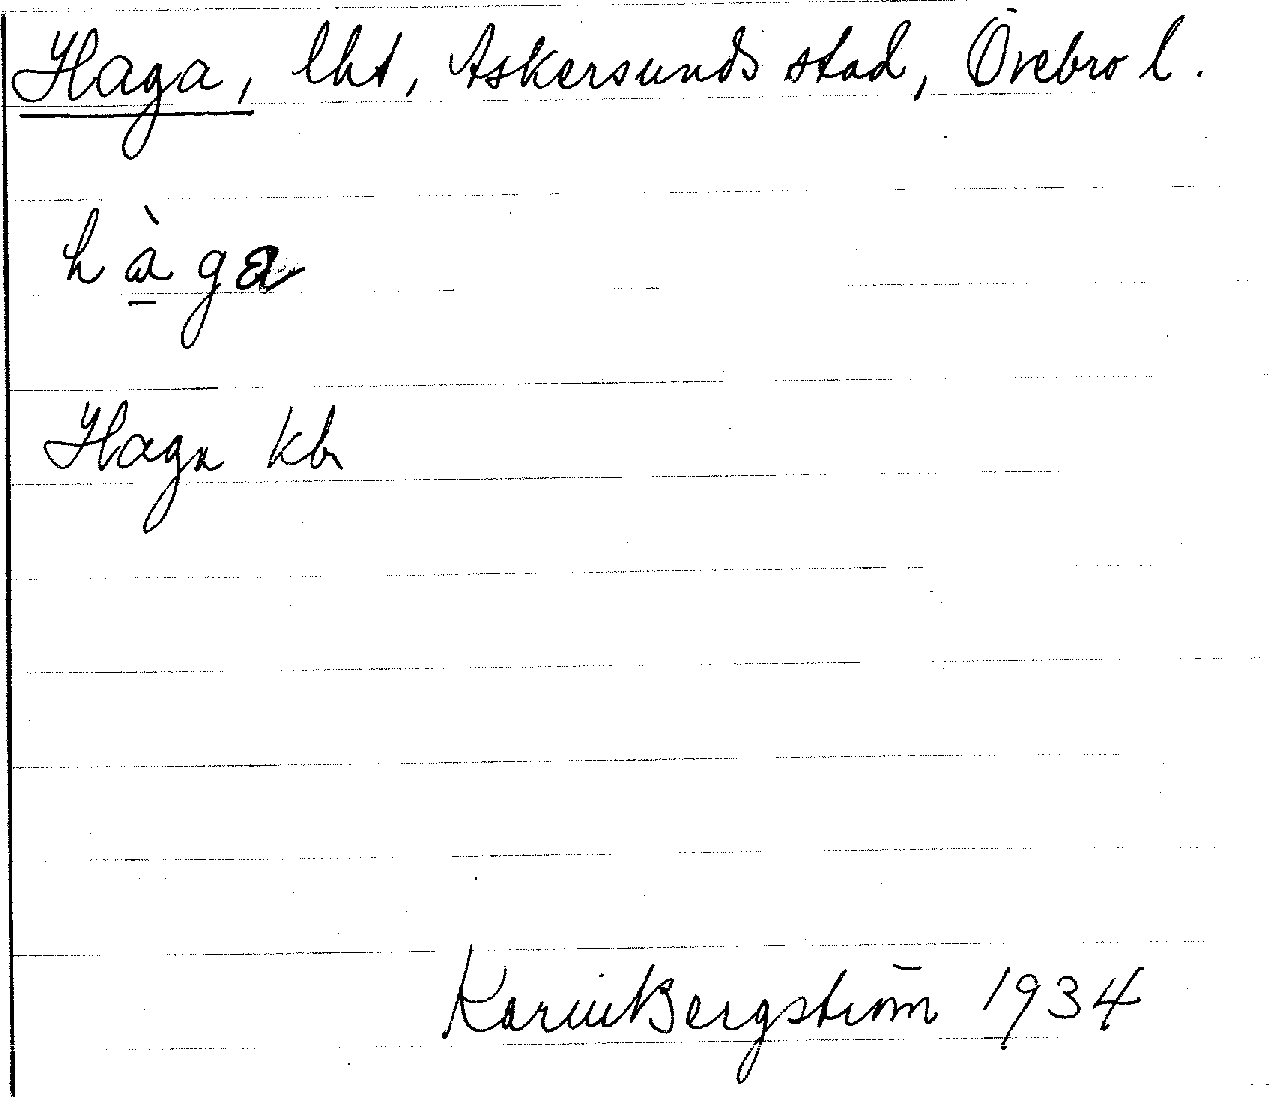 Haga, lht, Askersunds stad, Örebro l.
hàga
Haga kbr
Karin Bergström 1934